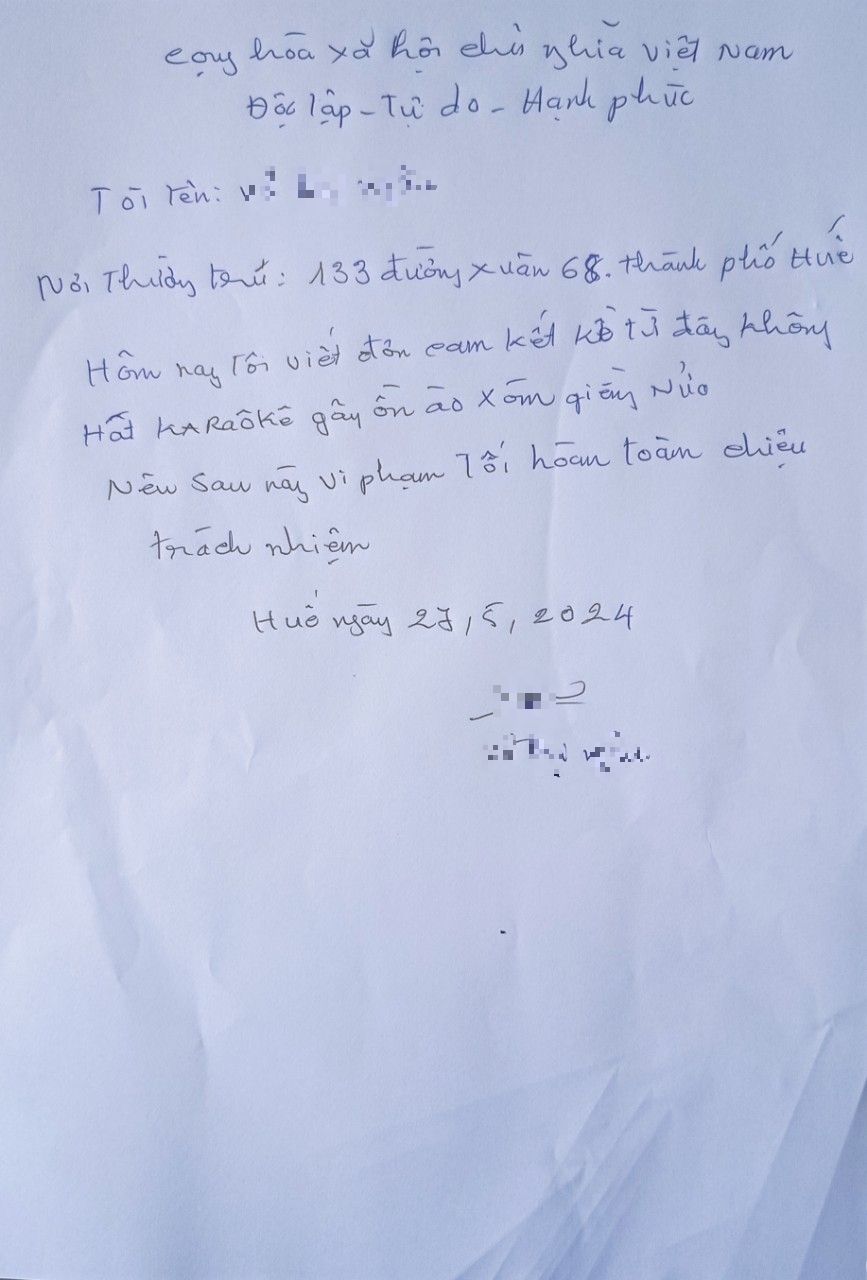 cộng hòa xã hội chủ nghĩa việt Nam
Độc lập - Tự do - Hạnh phúc
Tôi tên:
Nơi Thường trú: 133 đường xuân 68. thành phố Huế
Hôm nay Tôi viết đơn cam kết kể từ đây không
Hát KARaôKê gây ồn ào xóm giềng Nữa
Nếu sau này vi phạm Tôi hoàn toàn chiệu
trách nhiệm
Huế ngày 27, 5, 2024